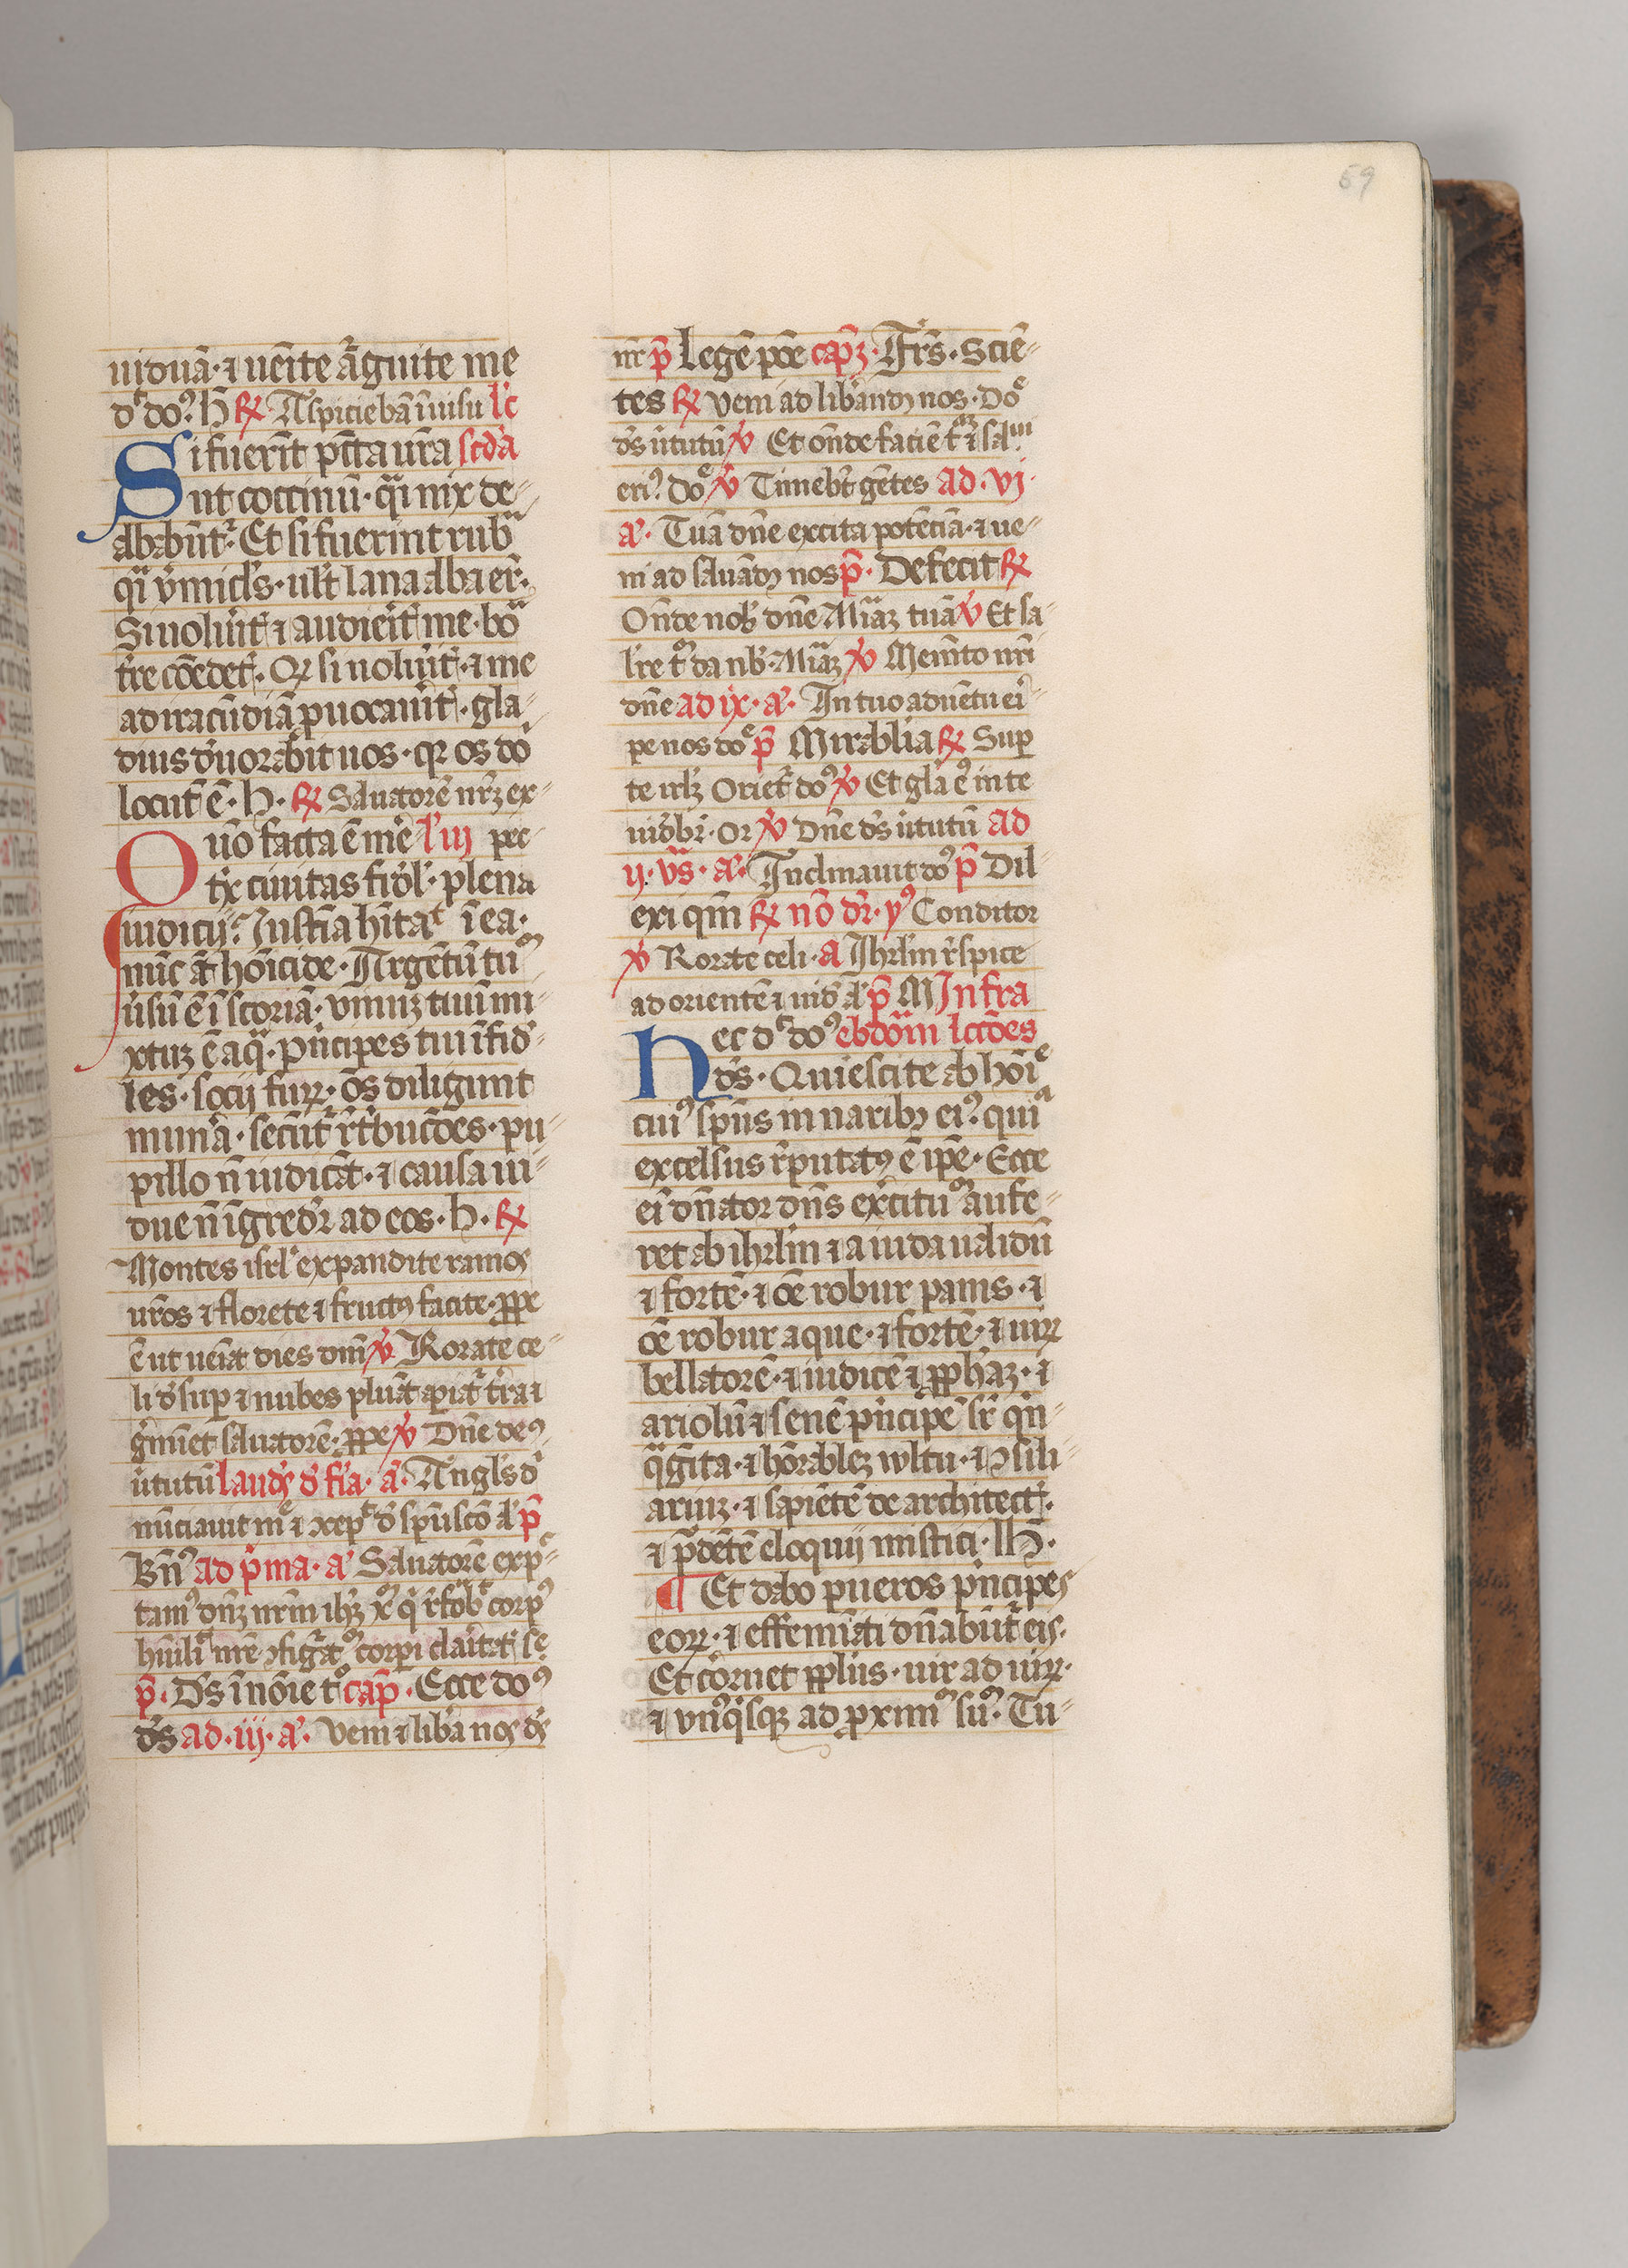 59
uiduā · ⁊ uēite āguite me
dt do⁹ · h̄ ℟ Aspiciebā ī uisu lc̄
Si fuerīt pc̄ta ur̄a scd̄a
ut coccinū · q̄i nix de-
albabūt᷑ · Et si fuerint rub
q̄i v̄micl's · ul't lana alba er̄ ·
Si uolūit᷑ ⁊ audieīt᷑ me · bo
tr̄e cōedet᷑ · Qꝛ si nolūit᷑ · ⁊ me
ad iracūdiā ꝓuocauīt᷑ · gla-
dius d̄uorabit uos · qꝛ os do
locut᷑ ē · h · ℟ Saluatorē nr̄ꝫ ex-
Quō facta ē m̄e l' iij
t̄x ciuitas fidel' · plena
iudicij · Iustīa hītāt ī ea ·
nūc āt hōicide · Argētū tū
ūsū ē ī scoriā · vinuꝫ tuū mi-
xtuꝫ ē aq̄ · p̄ncipes tui īfid-
les · socij furꝝ · ōs diligunt
munā · secūt᷑ r̄t'bucōes · pu-
pillo n̄ iudicāt · ⁊ causa ui-
due n̄ īgredr̄ ad eos · h · ℟
Montes isrl' expandite ramos
ur̄os ⁊ florete ⁊ fructꝰ facite · ꝓpe
ē ut ueīāt dies dn̄i ℣ Rorate ce-
li d̄sup ⁊ nubes pluāt apīat᷑ tr̄a ⁊
ḡmīet saluatorē · ꝓpe ℣ Dn̄e deꝰ
ūtutū laudꝰ d' fīa · a · Angl's dī
nūciauit me ⁊ ꝯcepᵗ d' spūscō al' p̄
Bn̄ꝰ ad p̄ma · a Saluatorē expᶜ-
tamꝰ dn̄ꝫ nr̄m ih̄ꝫ xp̄ q̄ r̄fōb corpꝰ
hūilī nr̄e ꝯfigāt᷑ corpi clāitāt᷑ se
p̄ · Ds̄ ī nōie tᵒ cap̄ · Ecce doꝰ
ds̄ ad · iij · a · Veni ⁊ libā nos ds̄
nr̄ p̄ Legē pōe cap̄ꝫ · Frs̄ · Sciē-
tes ℟ Veni ad libandꝫ nos · Doᵉ
ds̄ ūtutū ℣ Et ōnde faciē t᷑ ⁊ sal
eriꝰ doᵉ ℣ Timebt̄ gētes ad · vj ·
a · Tuā dn̄e excita potēciā · ⁊ ue-
ni ad saluādꝫ nos p̄ · Defecit ℟
Onde nob' dn̄e Mīaꝫ tuā ℣ Et sa-
l're t᷑ da nb' · Mīaꝫ ℣ Memēto nr̄i
dn̄e ad ix · a · In tuo aduētu eī-
pe nos doᵉ p̄ Mirablia ℟ Sup
te irlꝫ Oriet᷑ doꝰ ℣ Et gl'a eꝰ in te
uidebr̄ · Or ℣ Dn̄e ds̄ ūtutū ad
ij · vs̄ · a · Inclinauit doꝰ p̄ Dil-
exi qm̄ ℟ nō dr̄ · yꝰ Conditor
℣ Rorate celi · a Ihrl'm r̄spice
ad orientē ⁊ uid' al' p̄ M Infra
Hec dt doꝰ ebdom̄ lcc̄des
ds̄ · Quiescite ab hoīe
cuiꝰ spūs in naribꝫ eiꝰ · quī
excelsus r̄putatꝰ ē ip̄e · Ecce
eī dn̄ator dn̄s ex̄citū aufe-
ret ab ihrl'm ⁊ a iuda ualidū
⁊ fortē · ⁊ oē robur panis · ⁊
oē robur aque · ⁊ fortē · ⁊ uiꝝ
bellatorē · ⁊ iudicē ⁊ ꝓphaꝫ · ⁊
ariolū ⁊ senē p̄ncipē sr̄ q̄n-
q̄gīta · ⁊ hōrablēꝫ uultu · ⁊ ꝯsili-
ariuꝫ · ⁊ sapiētē de architectꝭ ·
⁊ pꝛdētē eloquij mistici · Ih ·
¶ Et dabo pueros p̄ncipes
eoꝝ · ⁊ effemīati dn̄abūt᷑ eis ·
Et cōrruet ꝓplūs · uir ad uiꝝ ·
⁊ vnꝰqisqꝫ ad ꝓximū suū · Tu-